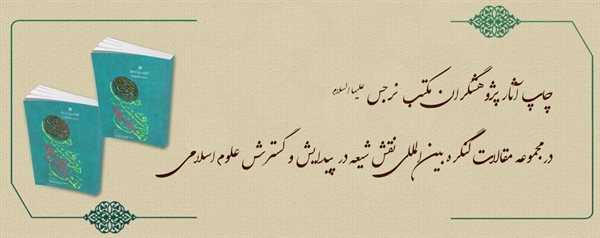 چاپ آثار پژوهشگران مکتب نرجس علیهاالسلام
در مجموعه مقالات کنگره بین‌المللی نقش شیعه در پیدایش و گسترش علوم اسلامی